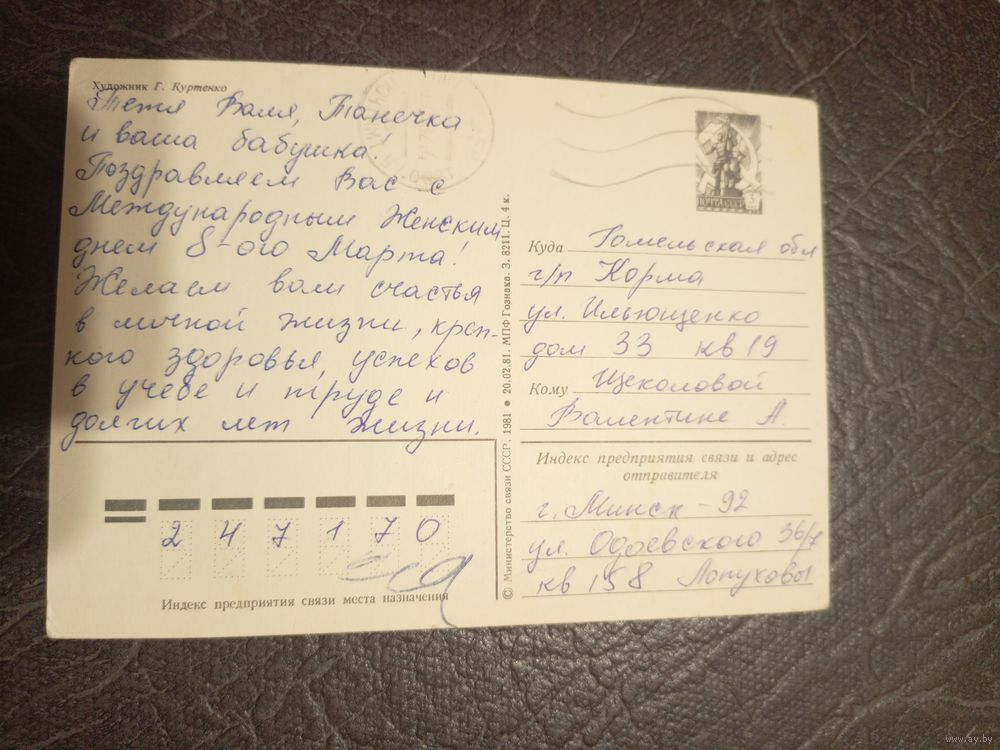 Художник Г. Куртенко
Тетя Валя, Танечка
и ваша бабушка!
Поздравляем Вас с
Международным Женским
днем 8-ого Марта!
Желаем вам счастья
в личной жизни, креп-
кого здоровья, успехов
в учебе и труде и
долгих лет жизни.
2 4 7 1 7 0
Индекс предприятия связи места назначения
© Министерство связи СССР, 1981 ● 20.02.81. МПФ Гознака. З. 8211. Ц. 4 к.
ПОЧТА СССР
Куда Гомельская обл
г/п Корма
ул. Ильющенко
дом 33 кв 19
Кому Щеколовой
Валентине А.
Индекс предприятия связи и адрес
отправителя
г. Минск - 92
ул. Одоевского 36/7
кв 158 Лопуховы
www.ay.by